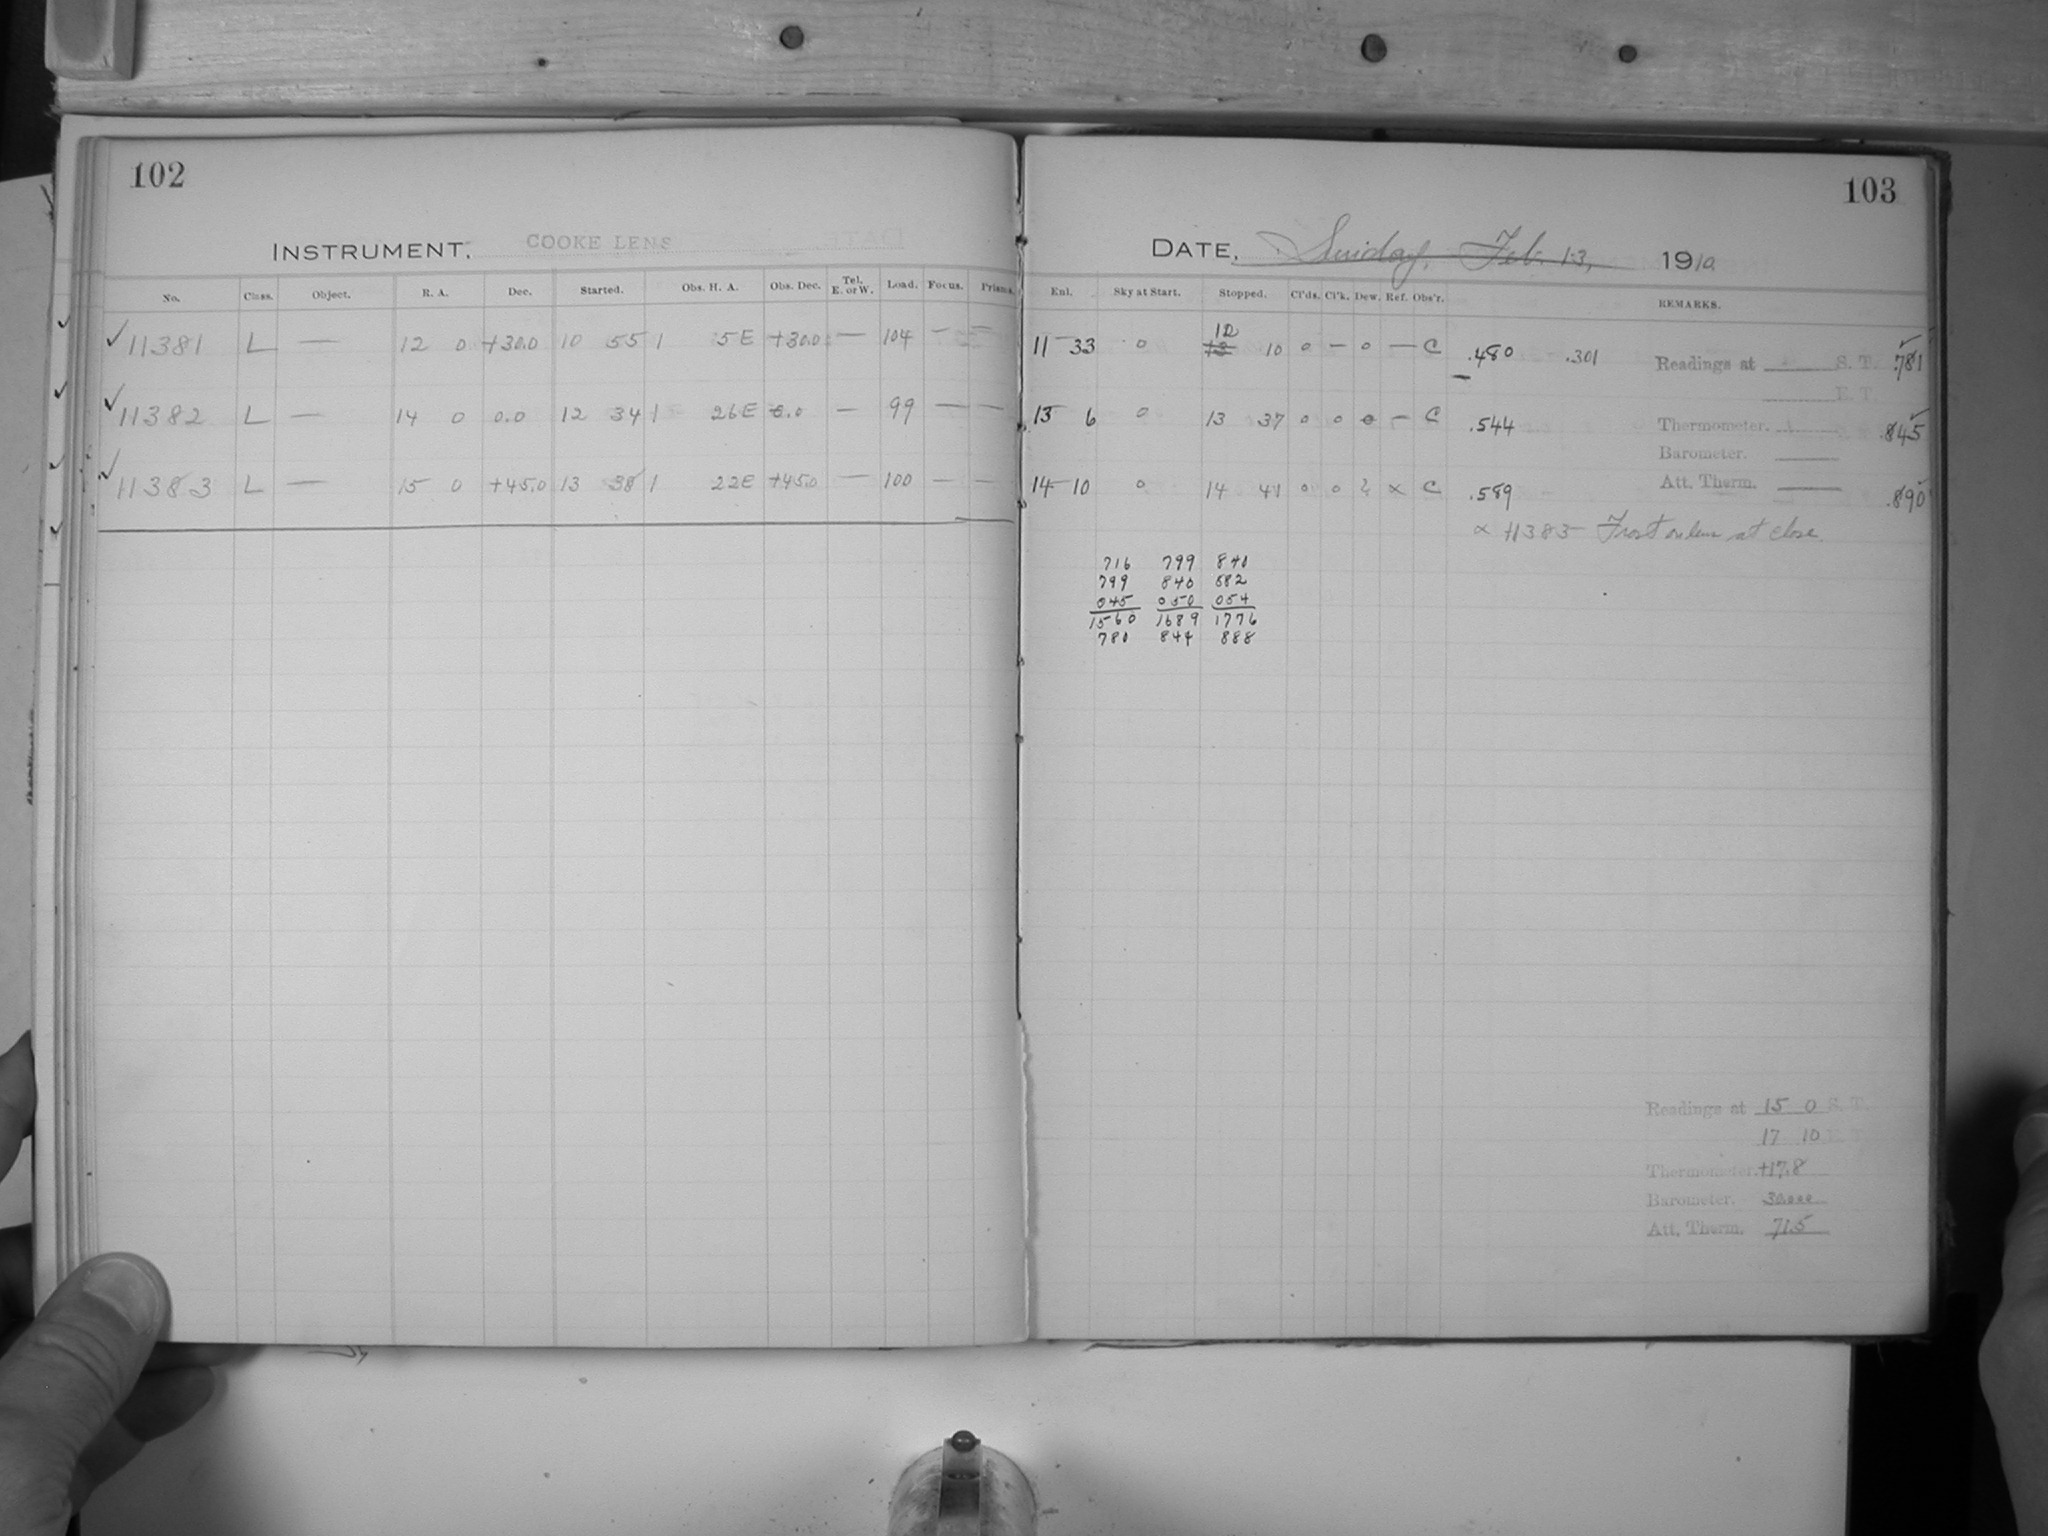 102
INSTRUMENT, COOKE LENS
No. Class. Object. R. A. Dec. Started. Obs. H. A. Obs. Dec. Tel. E. or W. Load. Focus. Prisms.
✓ 11381 L — 12 0 +30.0 10 55 1 5E +30.0 — 104 — —
✓ 11382 L — 14 0 0.0 12 34 1 26E 0.0 — 99 — —
✓ 11383 L — 15 0 +45.0 13 38 1 22E +45.0 — 100 — —
103
DATE, Sunday, Feb. 13, 1910.
Enl. Sky at Start. Stopped. Cl'ds. Cl'k. Dew. Ref. Obs'r. REMARKS.
11 33 0 12 10 0 — 0 — C .480 .301 Readings at S. T. .781
E. T.
13 6 0 13 37 0 0 0 — C .544 Thermometer. .845
Barometer.
14 10 0 14 41 0 0 ? × C .589 Att. Therm. .890
× 11383 Frost on lens at close.
716 799 840
799 840 882
045 050 054
1560 1689 1776
780 844 888
Readings at 15 0 S. T.
17 10 E. T.
Thermometer. +17.8
Barometer. 30.000
Att. Therm. 71.5